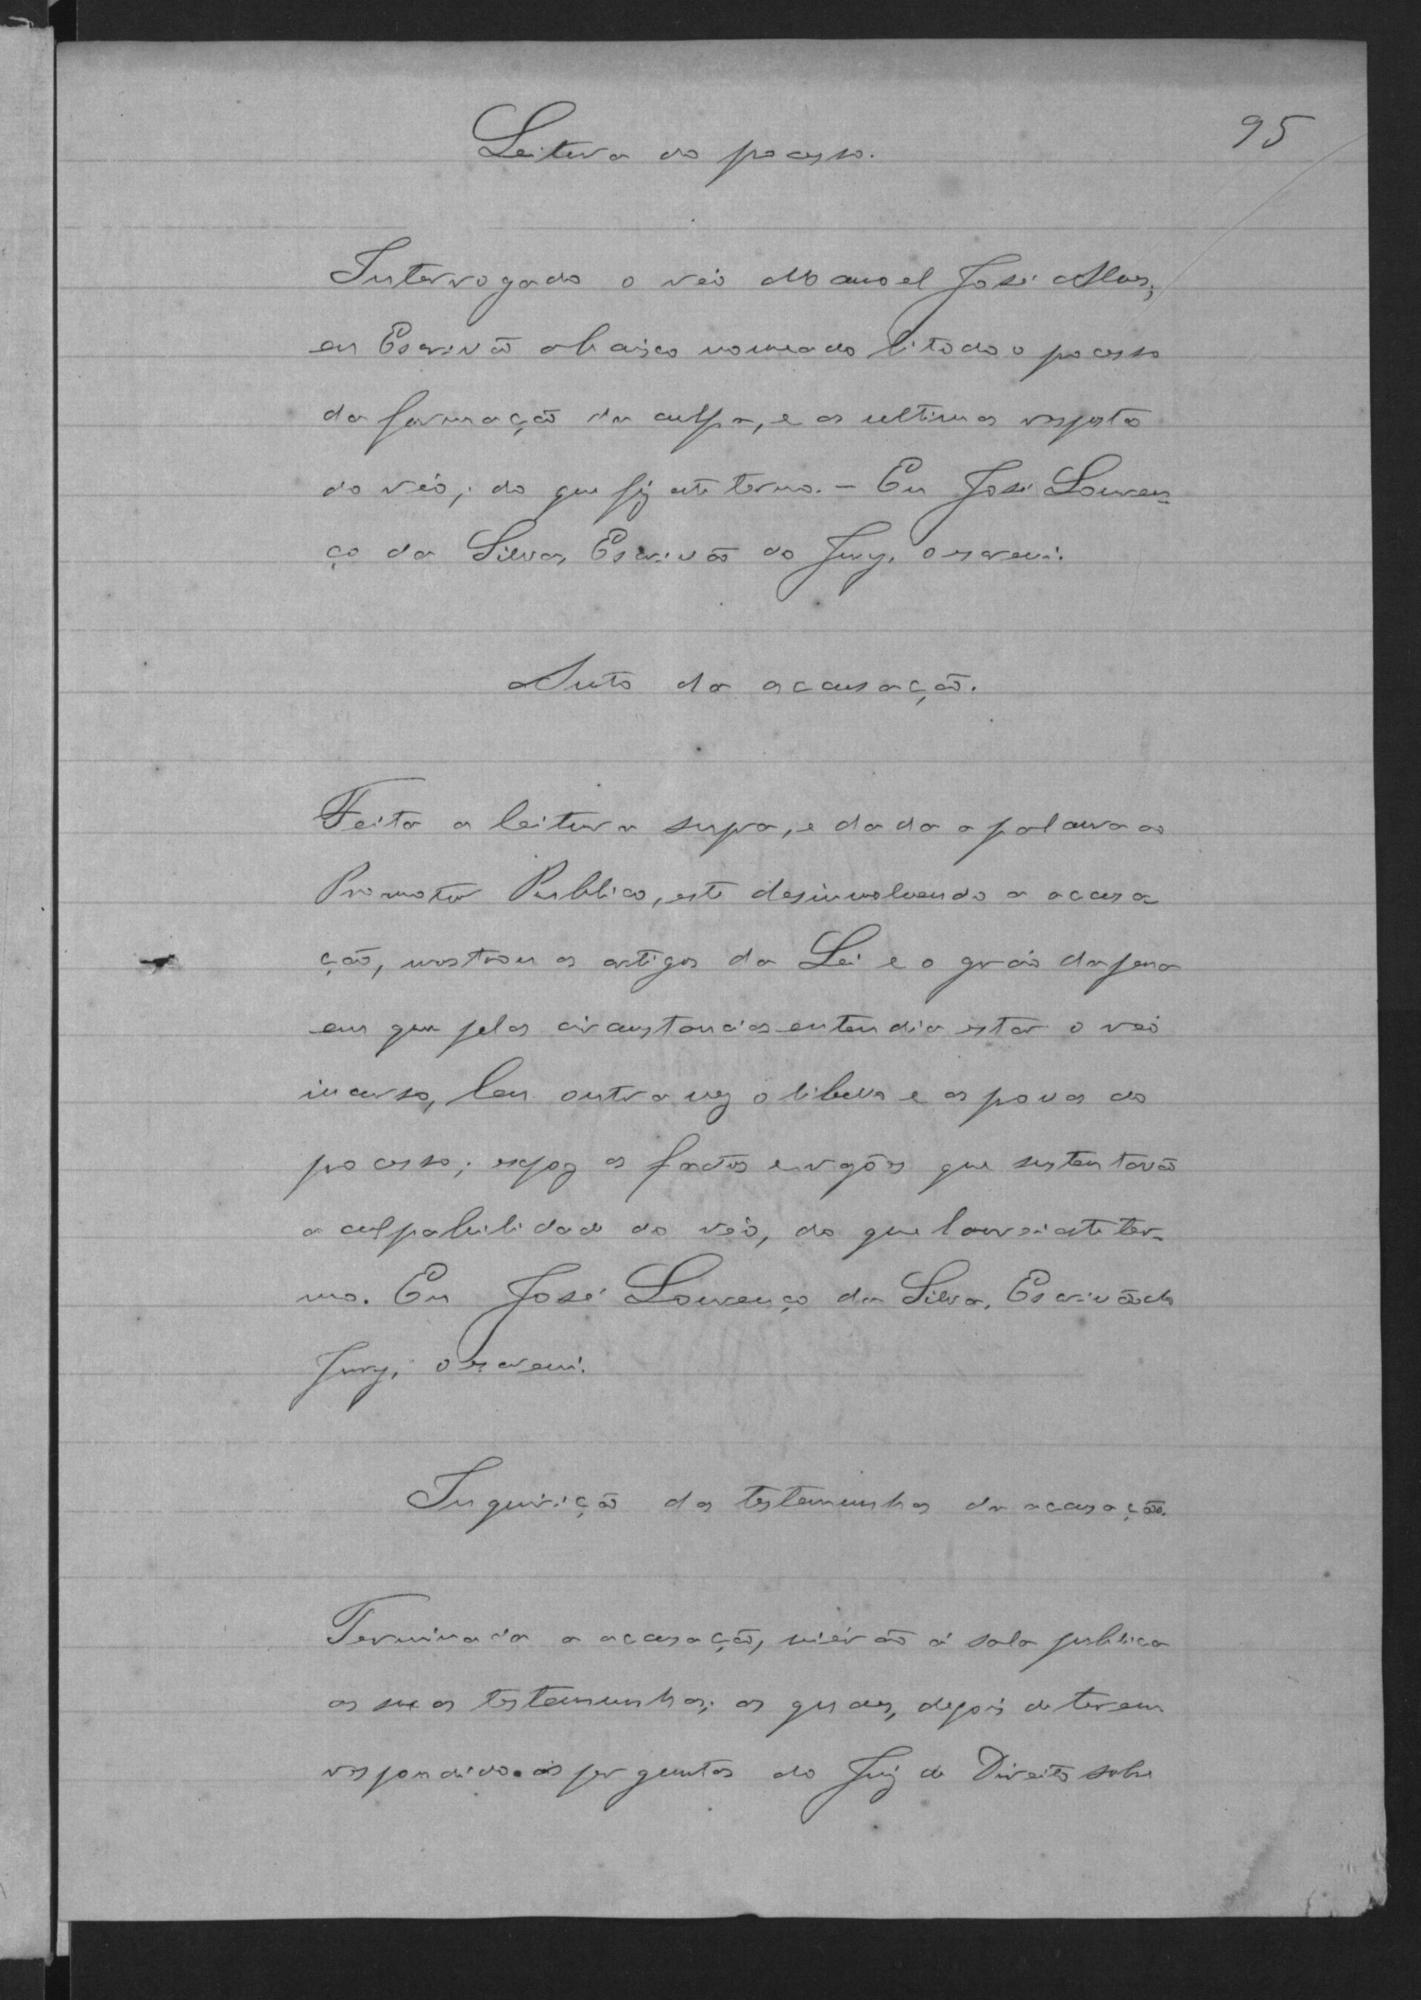 95
Leitura do processo.
Interrogado o réo Manoel José Alves,
eu Escrivão abaixo nomeado li todo o processo
da formação da culpa, e as ultimas respostas
do réo; do que fiz este termo. — Eu José Louren-
ço da Silva, Escrivão do Jury, o escrevi.
Auto da accusação.
Feita a leitura supra, e dada a palavra ao
Promotor Publico, este desinvolvendo a accusa-
ção, mostrou os artigos da Lei e o gráo da pena
em que pelas circumstancias entendia estar o réo
incurso, leu outra vez o libello e as provas do
processo; expoz os factos e rasões que sustentavão
a culpabilidade do réo, do que lavrei este ter-
mo. Eu José Lourenço da Silva, Escrivão do
Jury, o escrevi.
Inquirição das testemunhas da accusação.
Terminada a accusação, viérão á sala publica
as suas testemunhas; as quaes, depois de terem
respondido ás perguntas do Juiz de Direito sobre